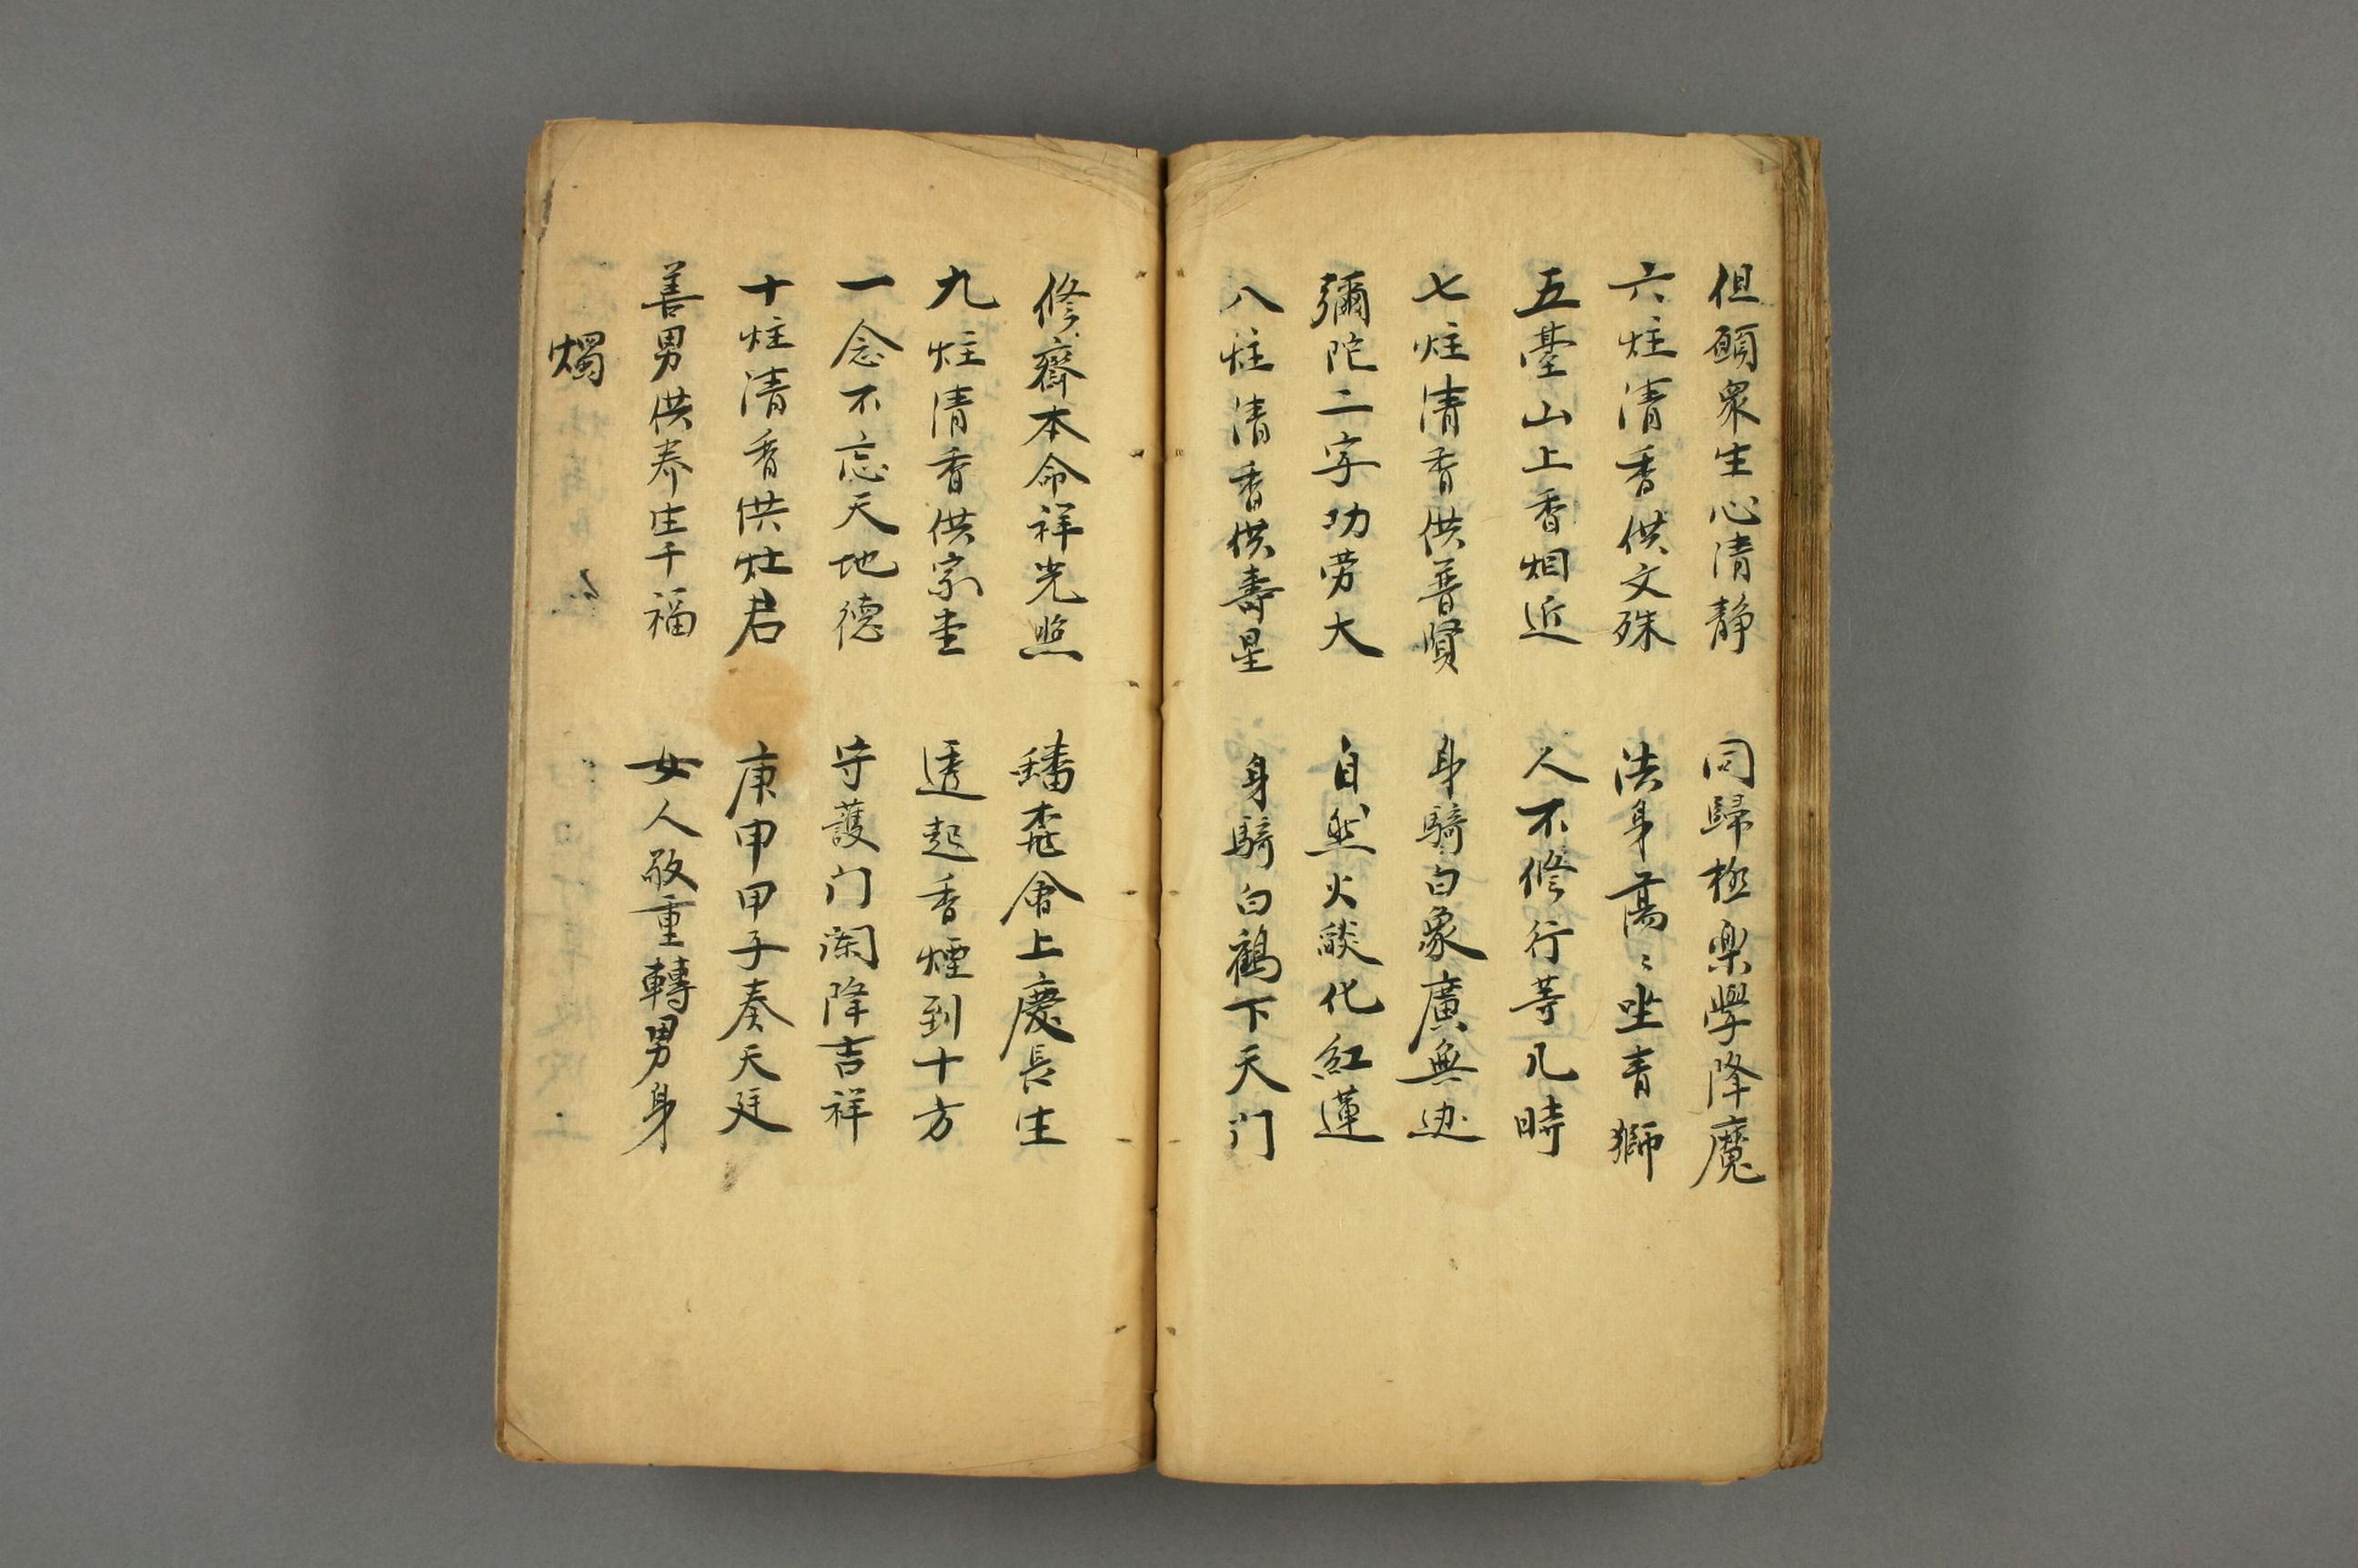 但願衆生心清静　同歸極楽學降魔
六炷清香供文殊　法身髙〻坐青獅
五䑓山上香烟近　人不修行等几時
七炷清香供普賢　身騎白象廣無边
彌陀二字功劳大　自然火𦦨化紅蓮
八炷清香供壽星　身騎白鶴下天门
修齋本命祥光照　蟠桃會上慶長生
九炷清香供家堂　透起香煙到十方
一念不忘天地德　守護门闌降吉祥
十炷清香供灶君　庚申甲子奏天廷
善男供养生千福　女人敬重轉男身
燭